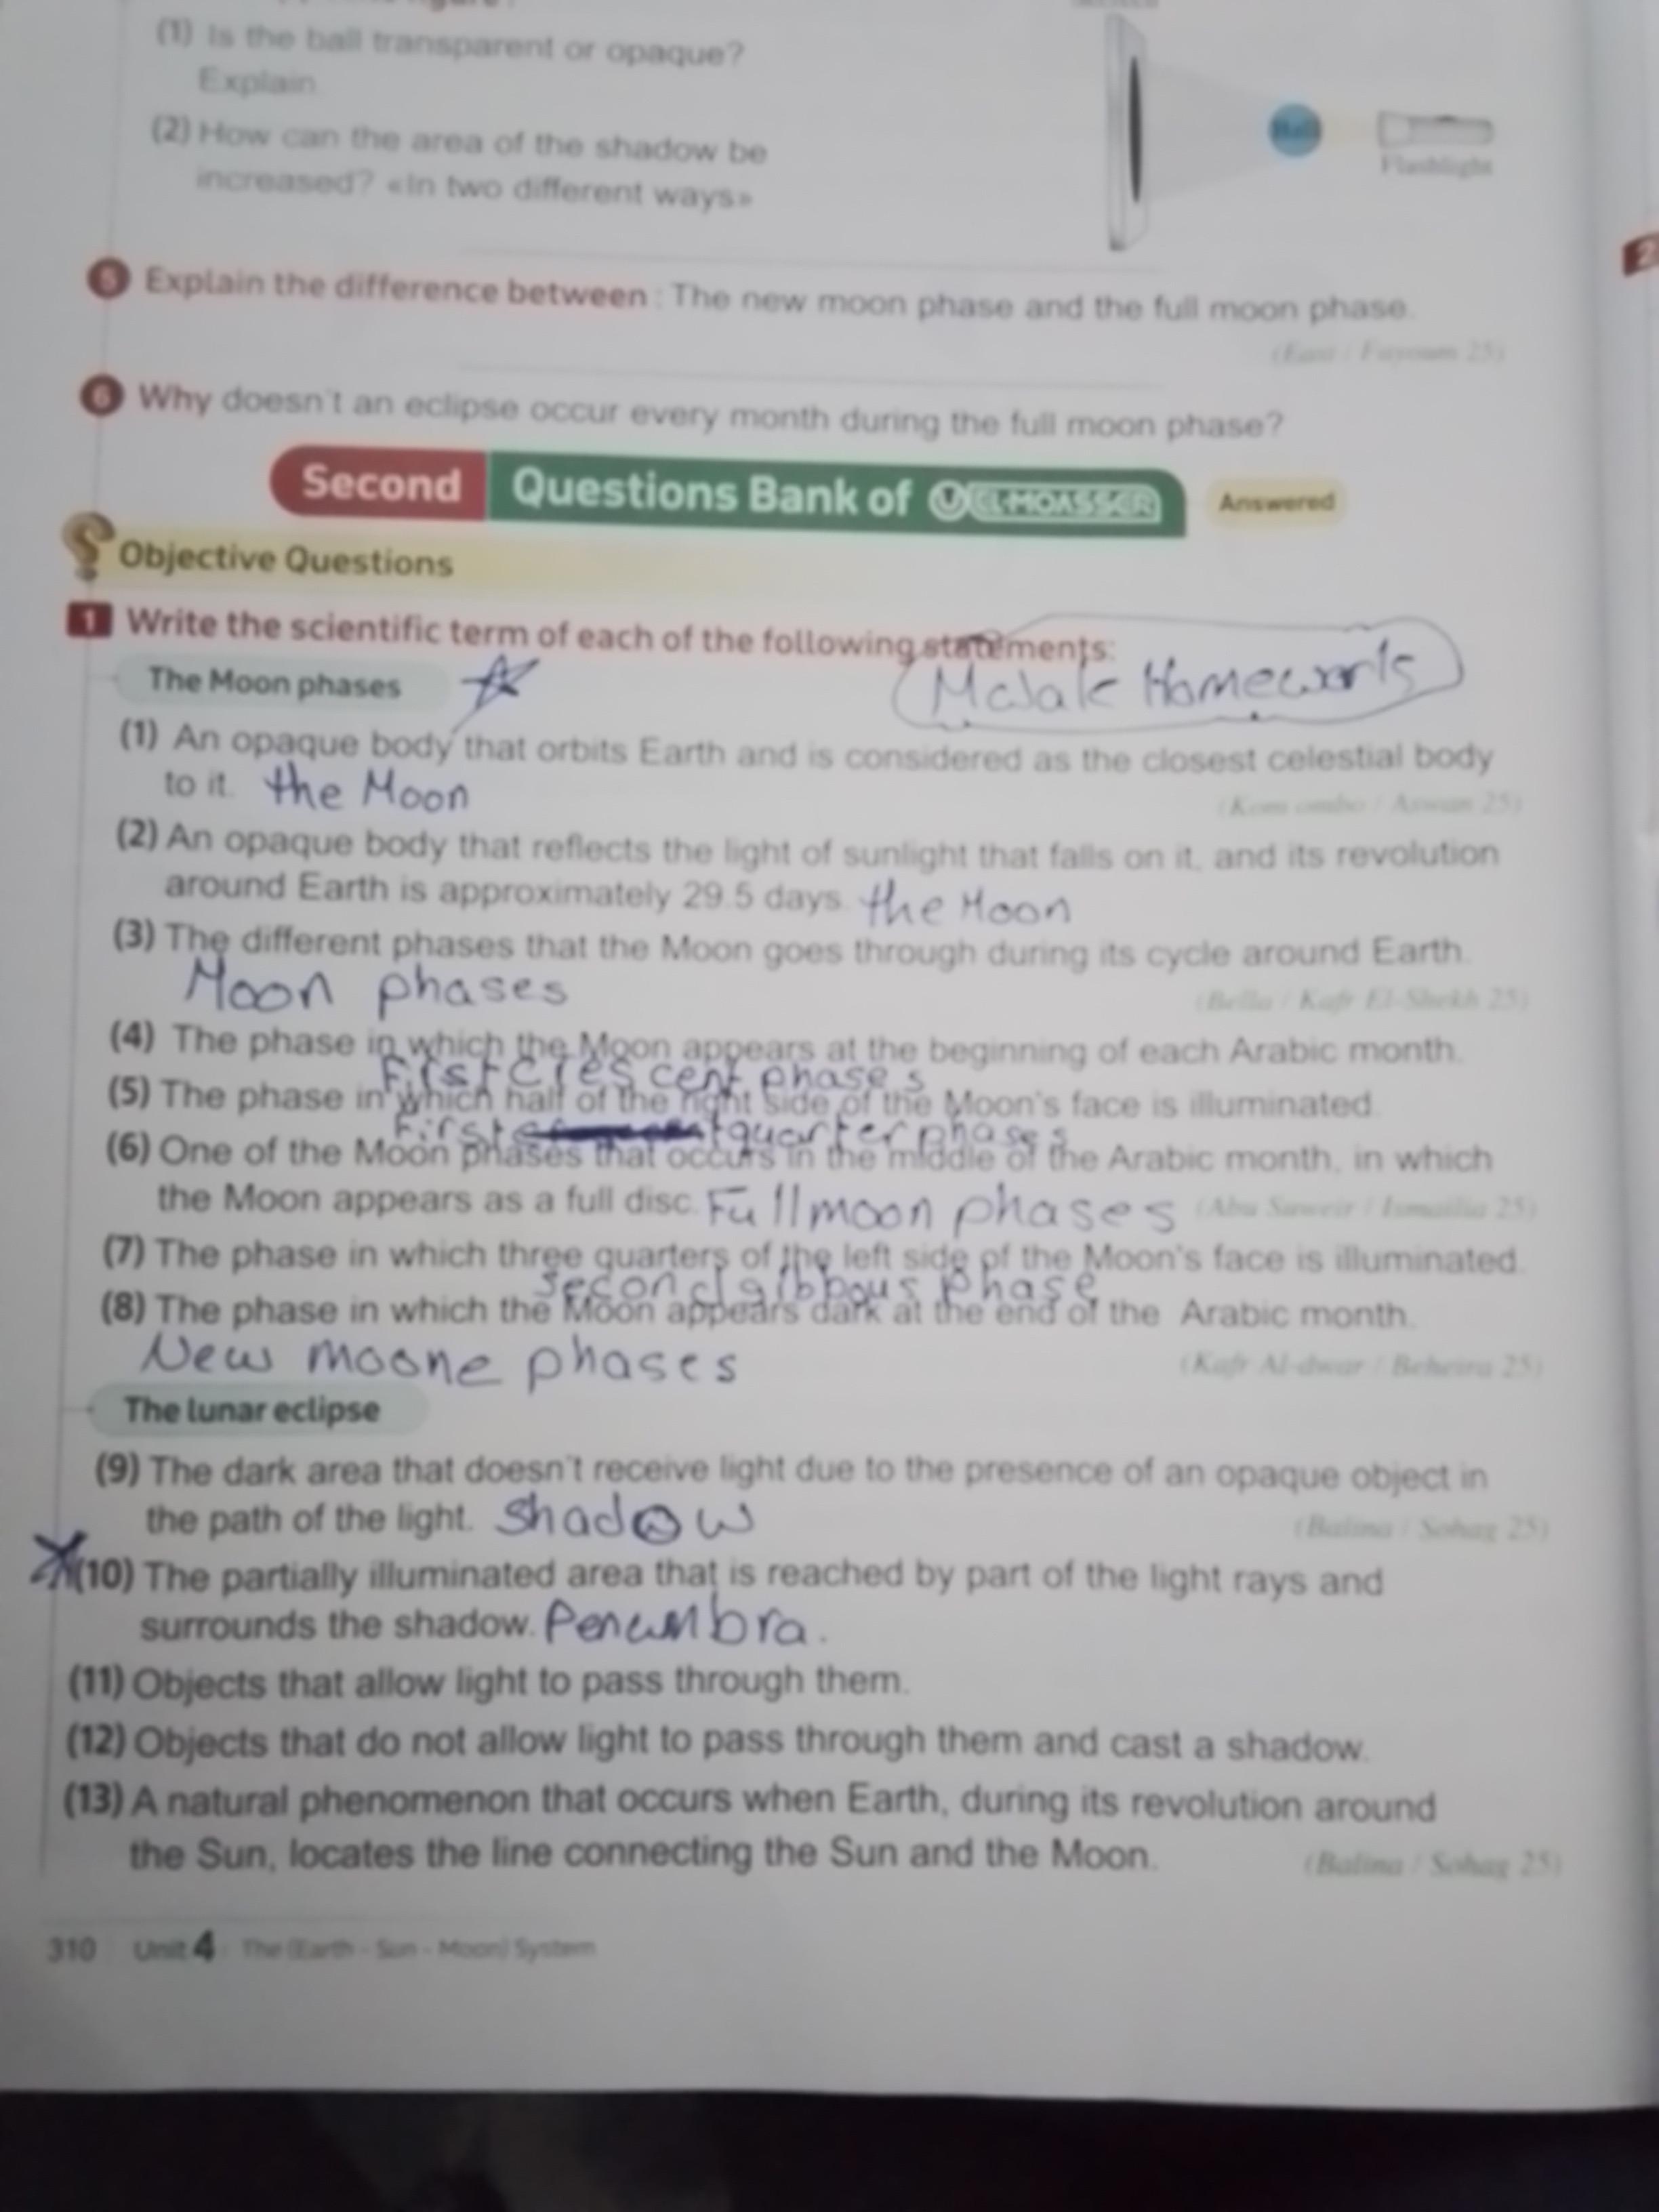 (1) Is the ball transparent or opaque?
Explain.
(2) How can the area of the shadow be
increased? «In two different ways»
Ball
Flashlight
5 Explain the difference between : The new moon phase and the full moon phase.
(East / Fayoum 25)
6 Why doesn't an eclipse occur every month during the full moon phase?
Second Questions Bank of EL-MOASSER Answered
Objective Questions
1 Write the scientific term of each of the following statements:
The Moon phases
Homework
(1) An opaque body that orbits Earth and is considered as the closest celestial body
to it. the Moon
(Kom ombo / Aswan 25)
(2) An opaque body that reflects the light of sunlight that falls on it, and its revolution
around Earth is approximately 29.5 days. the Moon
(3) The different phases that the Moon goes through during its cycle around Earth.
Moon phases
(Bella / Kafr El-Shekh 25)
(4) The phase in which the Moon appears at the beginning of each Arabic month.
First Cres cent phases
(5) The phase in which half of the right side of the Moon's face is illuminated.
First quarter phases
(6) One of the Moon phases that occurs in the middle of the Arabic month, in which
the Moon appears as a full disc. Full moon phases (Abu Suweir / Ismailia 25)
(7) The phase in which three quarters of the left side of the Moon's face is illuminated.
second gibbous phase
(8) The phase in which the Moon appears dark at the end of the Arabic month.
New moone phases
(Kafr Al-dwar / Beheira 25)
The lunar eclipse
(9) The dark area that doesn't receive light due to the presence of an opaque object in
the path of the light. Shadow
(Balina / Sohag 25)
(10) The partially illuminated area that is reached by part of the light rays and
surrounds the shadow. Penumbra.
(11) Objects that allow light to pass through them.
(12) Objects that do not allow light to pass through them and cast a shadow.
(13) A natural phenomenon that occurs when Earth, during its revolution around
the Sun, locates the line connecting the Sun and the Moon.
(Balina / Sohag 25)
310 Unit 4 The (Earth - Sun - Moon) System